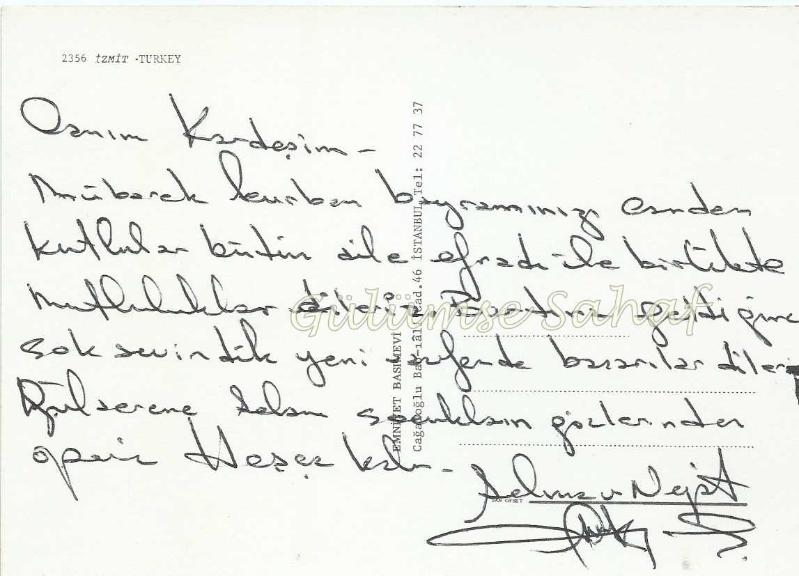 2356 İZMİT -TURKEY
Canım Kardeşim -
Mübarek kurban bayramınızı candan
kutlular bütün aile efradı ile birlikte
mutluluklar dileriz. geldiğine
çok sevindik yeni vazifende başarılar dileriz
Gülserene selam çocukların gözlerinden
öperiz Hoşça kalın -
Nejat
EMNİYET BASIMEVİ
Cağaloğlu Bab-ıâli Cad.46 İSTANBUL Tel: 22 77 37
Gülümse Sahaf